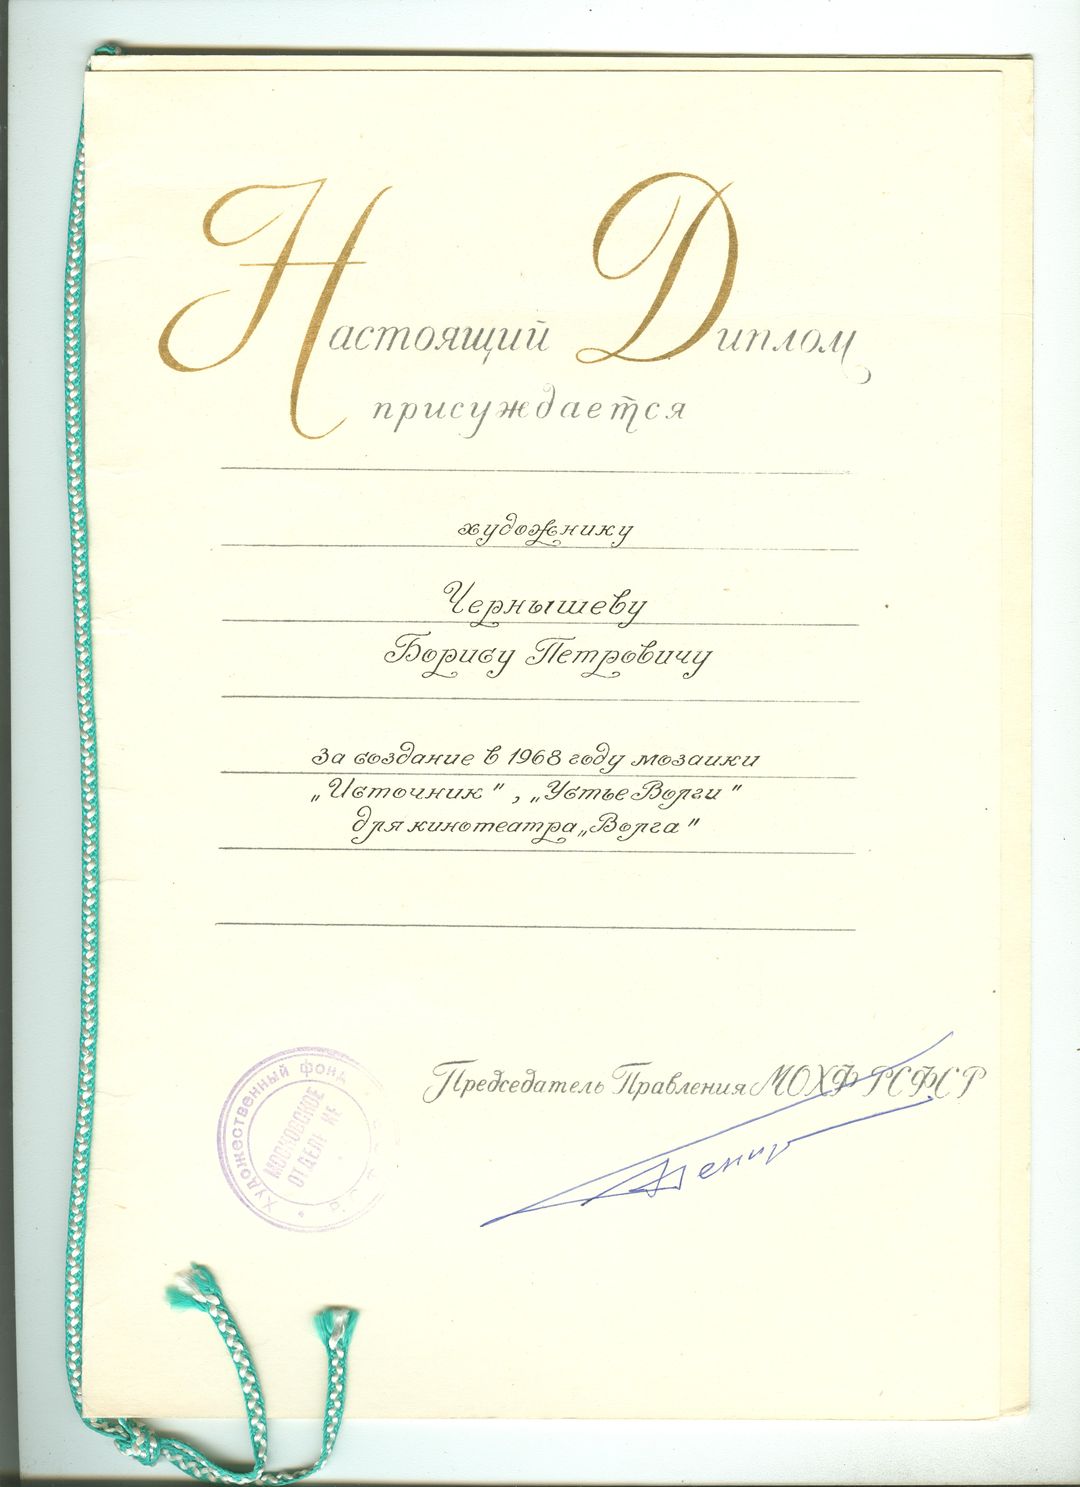 Настоящий Диплом
присуждается
художнику
Чернышеву
Борису Петровичу
За создание в 1968 году мозаики
„Источник", „Устье Волги"
для кинотеатра „Волга"
Председатель Правления МОХФ РСФСР
Художественный фонд
МОСКОВСКОЕ
ОТДЕЛЕНИЕ